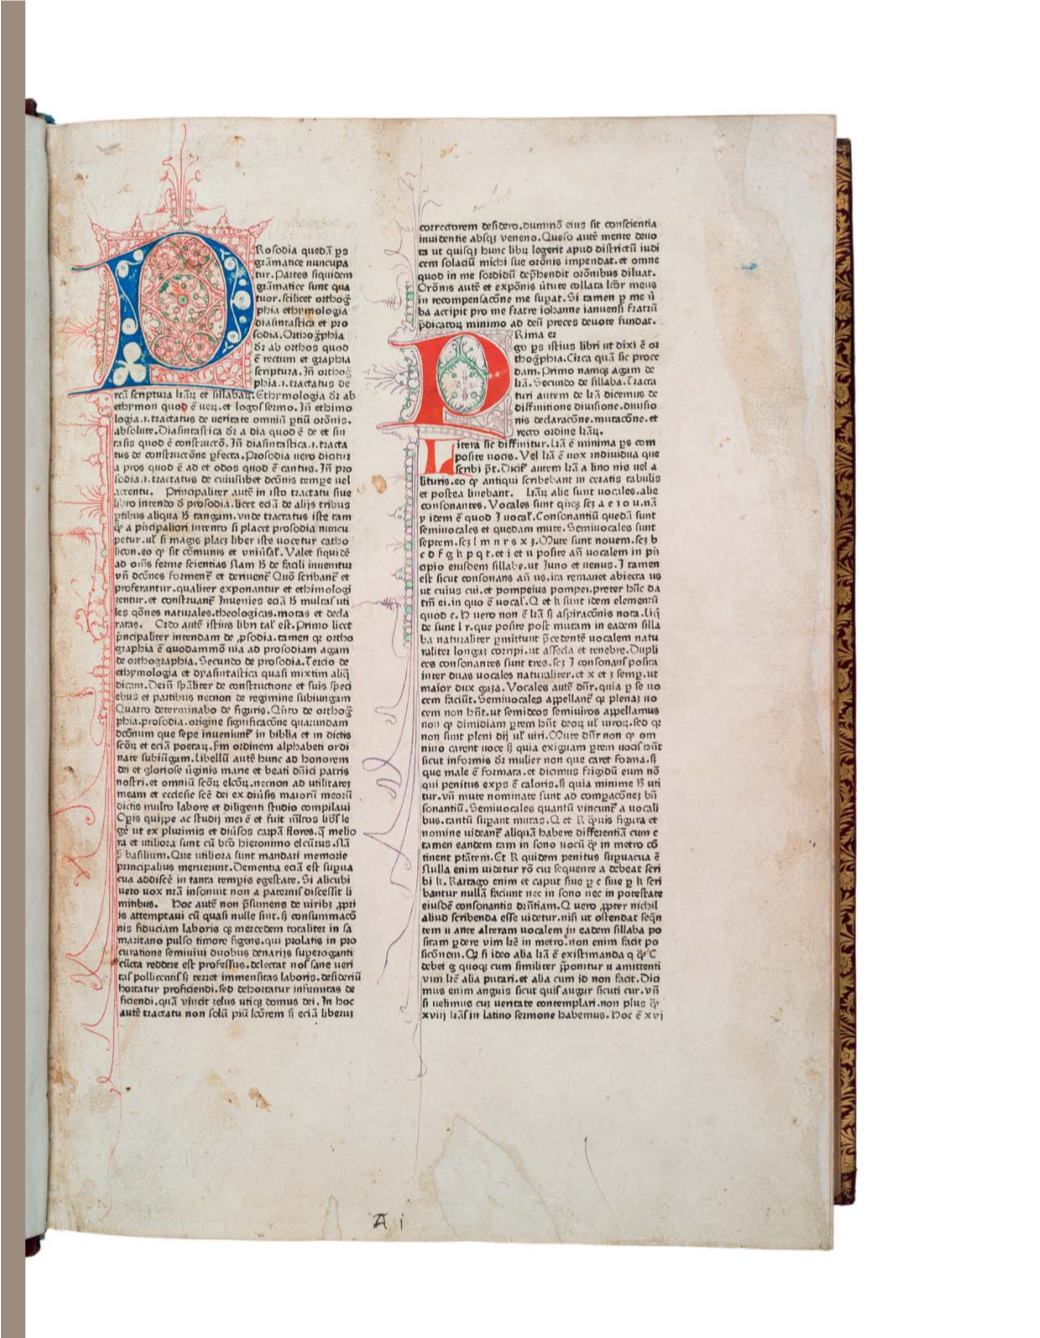 PRosodia quedā ps
grāmatice nuncupa
tur. Partes siquidem
grāmatice sunt qua
tuor. scilicet orthog̅
phia ethymologia
diasintastica et pro
sodia. Orthog̅phia
dr̄ ab orthos quod
ē rectum et graphia
scriptura. Jn̄ orthog̅
phia .i. tractatus de
recā scriptura lr̄aꝝ et sillabaꝝ. Ethymologia dr̄ ab
ethymon quod ē ueꝝ. et logos sermo. Jn̄ ethimo
logia .i. tractatus de ueritate omniū ꝑtiū orōnis.
absolute. Diasintastica dr̄ a dia quod ē de et sin
tasis quod ē constructō. Jn̄ diasintastica .i. tracta
tus de constructōne ꝑfecta. Prosodia uero dicitur
a pros quod ē ad et odos quod ē cantus. Jn̄ pro
sodia .i. tractatus de cuiuslibet dcōnis tempe uel
accentu. Principaliter autē in isto tractatu siue
libro intendo d̄ prosodia. licet eciā de alijs tribus
ꝑtibus aliqua ħ tangam. vnde tractatus iste tam
q̄ a pͥncipaliori intento si placet prosodia nuncu
petur. ul̄ si magis placꝫ liber iste uocetur catho
licon. eo ꝙ sit cōmunis et uniūsal̄. Valet siquidē
ad oīs̄ ferme sciencias nam ħ de facili inuenitur
vn̄ dcōnes formenť et deriuenť Quō scribanť et
proferantur. qualiter exponantur et ethimologi
zentur. et construanť Jnuenies eciā ħ multas uti
les qōnes naturales. theologicas. motas et decla
ratas. Ordo autē istius libri tal̄ est. Primo licet
pͥncipaliter intendam de ꝓsodia. tamen qꝛ ortho
graphia ē quodammō uia ad prosodiam agam
de orthographia. Secundo de prosodia. Tercio de
ethymologia et dyasintastica quasi mixtim aliq̄
dicam. Dein̄ spāliter de constructione et suis speci
ebus et partibus necnon de regimine subiungam
Quarto determinabo de figuris. Qͥnto de orthog̅
phia. prosodia. origine significacōne quarundam
dcōnum que sepe inueniunť in biblia et in dictis
sc̄oꝝ et eciā poetaꝝ. s̄m ordinem alphabeti ordi
nate subiūgam. Libellū autē hunc ad honorem
dei et gloriose ūginis marie et beati dn̄ici patris
nostri. et omniū sc̄oꝝ elc̄oꝝ. necnon ad utilitatez
meam et ecclesie sc̄e dei ex diūsis maiorū meorū
dictis multo labore et diligenti studio compilaui
Opis quippe ac studij mei ē et fuit m̄ltos lib̄s le
gē ut ex plurimis et diūsos carpā flores. q̄ melio
ra et utiliora sunt cū bt̄o hieronimo elc̄urus. nā
ẜ basilium. Que utiliora sunt mandari memorie
principalius meruerunt. Dementia eciā est supua
cua addiscē in tanta tempis egestate. Si alicubi
uero uox nr̄a insonuit non a paternis discessit li
mitibus. Hoc autē non p̄sumens de uiribꝫ ꝓpri
is attemptaui cū quasi nulle sint. s̄ consummacō
nis fiduciam laboris qꝫ mercedem totaliter in sa
maritano pulso timore figens. qui prolatis in pro
curatione seminiui duobus denarijs superoganti
cūcta reddere est professus. delectat nos̄ sane ueri
tas̄ pollicentis s̄ terret immensitas laboris. desideriū
hortatur proficiendi. sed dehortatur infirmitas de
ficiendi. quā vincit zelus utiqꝫ domus dei. Jn hoc
autē tractatu non solū piū lc̄orem s̄ eciā liberuꝫ
correctorem desidero. dummō eius sit conscientia
inuidentie absqꝫ veneno. Queso autē mente deuo
ta ut quisqꝫ hunc libꝝ legerit apud districtū iudi
cem solaciū michi sue orōnis impendat. et omne
quod in me sordidū dep̄hendit orōnibus diluat.
Orōnis autē et expōnis ūtute collata lc̄or meus
in recompensacōne me supat. Si tamen ꝑ me ū
ba accipit pro me fratre iohanne ianuensi fratrū
p̄dicatoꝝ minimo ad deū preces deuote fundat.
PRima er
go ps istius libri ut dixi ē or
thog̅phia. Circa quā sic proce
dam. Primo namqꝫ agam de
lr̄a. Secundo de sillaba. Circa
turi autem de lr̄a dicemus de
diffinitione diuisione. diuisio
nis declaracōne. mutacōne. et
recto ordine lr̄aꝝ.
Litera sic diffinitur. lr̄a ē minima ps com
posite uocis. Vel lr̄a ē uox indiuidua que
scribi pt̄. Dicit᷑ autem lr̄a a lino nis uel a
lituris. eo ꝙ antiqui scribebant in ceratis tabulis
et postea linebant. Lr̄aꝝ alie sunt uocales. alie
consonantes. Vocales sunt qͥnqꝫ scꝫ a e i o u. nā
y idem ē quod J uocal̄. Consonantiū quedā sunt
semiuocales et quedam mute. Semiuocales sunt
septem. scꝫ l m n r s x z. Mute sunt nouem. scꝫ b
c d f g k p q t. et i et u posite an̄ uocalem in pͥn
cipio eiusdem sillabe. ut Juno et uenus. J tamen
est sicut consonans an̄ us. ita remanet abiecta us
ut cuius cui. et pompeius pompei. preter huīc da
tm̄ ei. in quo ē uocal̄. Q et k sunt idem elementū
quod c. H uero non ē lr̄a s̄ aspiracōnis nota. Liq̄
de sunt l r. que posite post mutam in eadem silla
ba naturaliter ꝑmittunt p̄cedentē uocalem natu
raliter longaꝫ corripi. ut assecla et tenebre. Dupli
ces consonantes sunt tres. scꝫ J consonans̄ posita
inter duas uocales naturaliter. et x et z semꝑ. ut
maior dux gaza. Vocales autē dn̄r. quia ꝑ se uo
cem faciūt. Semiuocales appellanť qꝛ plenaꝫ uo
cem non hn̄t. ut semideos semiuiros appellamus
non qꝛ dimidiam ꝑtem hn̄t deoꝝ ul̄ uiroꝝ. seo qꝛ
non sunt pleni dij ul̄ uiri. Mute dn̄r non qꝛ om
nino carent uoce s̄ quia exiguam ꝑtem uocis hn̄t
sicut informis dr̄ mulier non que caret forma. s̄
que male ē formata. et dicimus frigidū eum nō
qui penitus exps ē caloris. s̄ quia minime ħ uti
tur. vn̄ mute nominate sunt ad compacōneꝫ bn̄
sonantiū. Semiuocales quantū vincunť a uocali
bus. cantū supant mutas. Q et K qͣuis figura et
nomine uideanť aliquā habere differentiā cum c
tamen eandem tam in sono uocū qͣ in metro cō
tinent ptātem. Et k quidem penitus supuacua ē
Nulla enim uidetur rō cur sequente a debeat scri
bi k. Kartago enim et caput siue ꝑ c siue ꝑ k scri
bantur nullā faciunt nec in sono nec in potestate
eiusdē consonantis dr̄ntiam. Q uero ꝓpter nichil
aliud scribenda esse uidetur. nisi ut ostendat seq̄n
tem u ante alteram uocalem in eadem sillaba po
sitam ꝑdere vim lr̄e in metro. non enim facit po
sicōnem. Qꝫ si ideo alia lr̄a ē existimanda q qͣ C
debet g quoqꝫ cum similiter p̄ponitur u amittenti
vim lr̄e alia putari. et alia cum id non facit. Dici
mus enim anguis sicut quis̄ augur sicuti cur. vn̄
si uelimus cuꝫ ueritate contemplari. non plus qͣ
xviij lr̄as in latino sermone habemus. Hoc ē xvj
A i